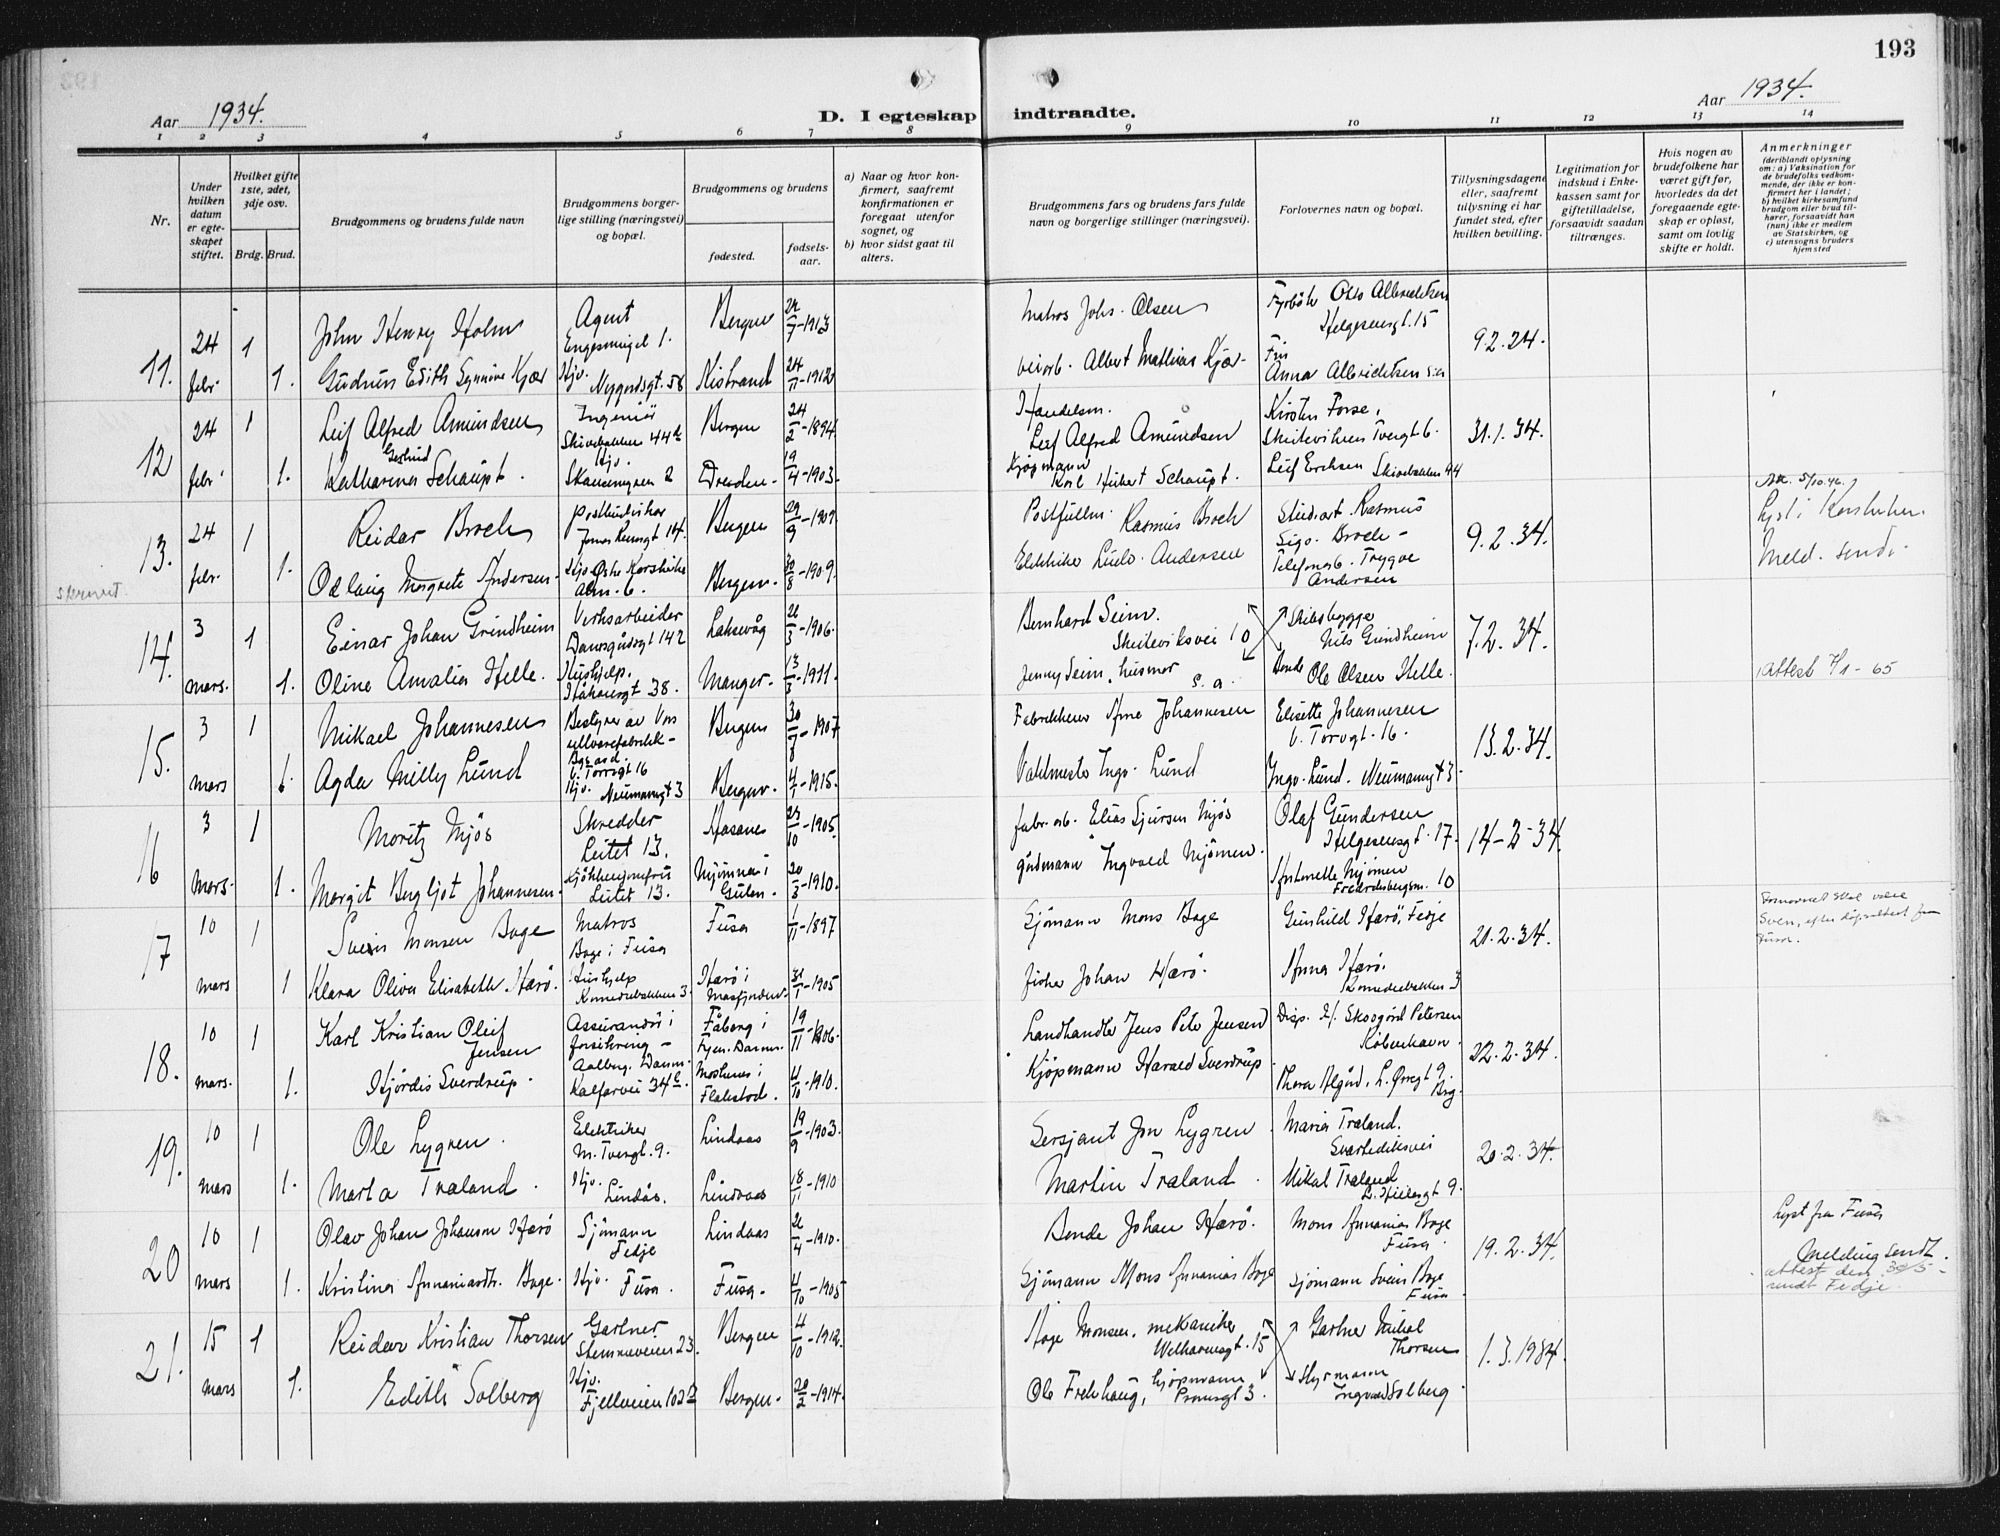 193
Aar 1934.
D. I egteskap indtraadte.
Aar 1934.
1 2 3 4 5 6 7 8 9 10 11 12 13 14
Nr.
Under hvilken datum er egteskapet stiftet.
Hvilket gifte 1ste, 2det, 3dje osv.
Brdg. Brud.
Brudgommens og brudens fulde navn
Brudgommens borgerlige stilling (næringsvei) og bopæl.
Brudgommens og brudens
fødested.
fødselsaar.
a) Naar og hvor konfirmert, saafremt konfirmationen er foregaat utenfor sognet, og
b) hvor sidst gaat til alters.
Brudgommens fars og brudens fars fulde navn og borgerlige stillinger (næringsvei).
Forlovernes navn og bopæl.
Tillysningsdagene eller, saafremt tillysning ei har fundet sted, efter hvilken bevilling.
Legitimation for indskud i Enkekassen samt for giftetilladelse, forsaavidt saadan tiltrænges.
Hvis nogen av brudefolkene har været gift før, hvorledes da det foregaaende egteskap er opløst, samt om lovlig skifte er holdt.
Anmerkninger
(deriblandt oplysning om: a) Vaksination for de brudefolks vedkommende, der ikke er konfirmert her i landet; b) hvilket kirkesamfund brudgom eller brud tilhører, forsaavidt han (hun) ikke er medlem av Statskirken, og c) utensogns bruders hjemsted
11. 24 febr. 1 John Henry Holm Agent 1. Bergen 1913 Matros Johs. Olsen Otto Albrektsen Helgesensgt. 15 9.2.24.
1. Gudrun Edith Synnøve Kjær Hjv. Nygårdsgt. 58 Kistrand 24/11-1912 Albert Mathias Kjær Fru Anna Albrektsen
12 24 febr 1 Leif Alfred Amundsen Ingeniør Bergen 24/2-1894 Handelsm. Leif Alfred Amundsen Kirsten Forse, 31.1.34.
1. Katharina Gertrud Schaupt. Hjv. 2 Dresden 19/4-1903. Kjøpmann Karl Hubert Schaupt. Leif Erichsen 44
13. 24 febr. 1 Reidar Broch Bergen 29/9-1907 Postfullm. Rasmus Broch Stud.art. Rasmus Sigv. Broch 9.2.34.
1. Odlaug Margrete Andersen Hjv. Alm. 6. Bergen 30/8-1909. Elektriker Ludv. Andersen Trygve Andersen
5/10.46. Lyst i Korskirken. Meld. sendt.
14. 3 mars. 1 Einar Johan Grindheim Verksarbeider Damsgårdsgt 142 Laksevåg 26/3-1906. Bernhard Seim. Skuteviksvei 10 Skibsbygge Nils Grindheim 7.2.34.
1. Oline Amalia Helle. Hushjelp. Håkonsgt 38. Manger. 13/3-1911 Jenny Seim, husmor s.a. Bonde Ole Olsen Helle.
Attest 7/1-65
15. 3 mars 1 Mikael Johannesen Bestyrer av Bergen 30/7-1907 Arne Johannesen Elisette Johannesen V. Torvgt. 16. 13.2.34.
1. Agda Milly Lund Hjv. Neumannsgt 3 Bergen. 4/1-1915. Ingv. Lund Ingv. Lund. Neumannsgt 3.
16 3 Mars. 1 Moritz Mjøs Skredder Leitet 13. Åsane 23/10-1905. Fabr.arb. Elias Sjursen Mjøs Olaf Gundersen Helgesensgt. 17. 14-2-34.
1. Margit Bergljot Johannesen. Leitet 13. Mjømna i Gulen. 20/3-1910. Ingvald Mjømen. Antonette Mjømen 10
17 10 mars 1 Svein Monsen Bage Matros Bage i Fusa Fusa 1/11-1897 Sjømann Mons Bage Gunhild Harø, Fedje 21.2.34.
1 Klara Oliva Elisabeth Harø. Hushjelp 3. Harø i Masfjorden. 31/1-1905 Fisker Johan Harø. Anna Harø. 3
Fornavnet skal være Sven, efter dåpsattest fra Fusa.
18. 10 mars. 1 Karl Kristian Oluf Jensen Assurandør i forsikring Aalborg. Danm. Fåborg i Fyen. Danm. 19/11-1906. Landhandler Jens Peter Jensen Disp. Skovgård Petersen København. 22.2.34.
1. Hjørdis Sverdrup. Kalfarvei 34 i Flakstad. 4/10-1910. Kjøpmann Harald Sverdrup. Thora Algård, 9. Brg.
19. 10 mars 1 Ole Lygren. Elektriker M. Tvergt. 9. Lindaas 19/9-1903. Sersjant Jon Lygren. Maria Træland. Svartediksvei 20.2.34.
1. Marta Træland. Hjv. Lindås. Lindaas 18/11-1910 Martin Træland. Mikal Træland 9.
20 10 mars 1 Olav Johan Johansen Harø Sjømann Fedje Lindaas 26/4-1910. Bonde Johan Harø. Mons Annanias Bage Fusa. 19.2.34.
1. Kristina Annaniasdtr. Bage. Hjv. Fusa. Fusa. 4/10-1905 Sjømann Mons Annanias Bage Sjømann Svein Bage Fusa
Lyst fra Fusa
Melding sendt.
attest den 30/5 sendt Fedje.
21. 15 mars 1 Reidar Kristian Thorsen Gartner Stemmeveien 23. Bergen 4/10-1912. Aage Monsen, mekaniker Welhavensgt. 15 Gartner Mikal Thorsen 1.3.1934.
1. Edith Solberg Hjv. Fjellveien 102 Bergen. 20/2-1914. Ole Frekhaug, kjøpmann 3. Styrmann Ingvald Solberg.